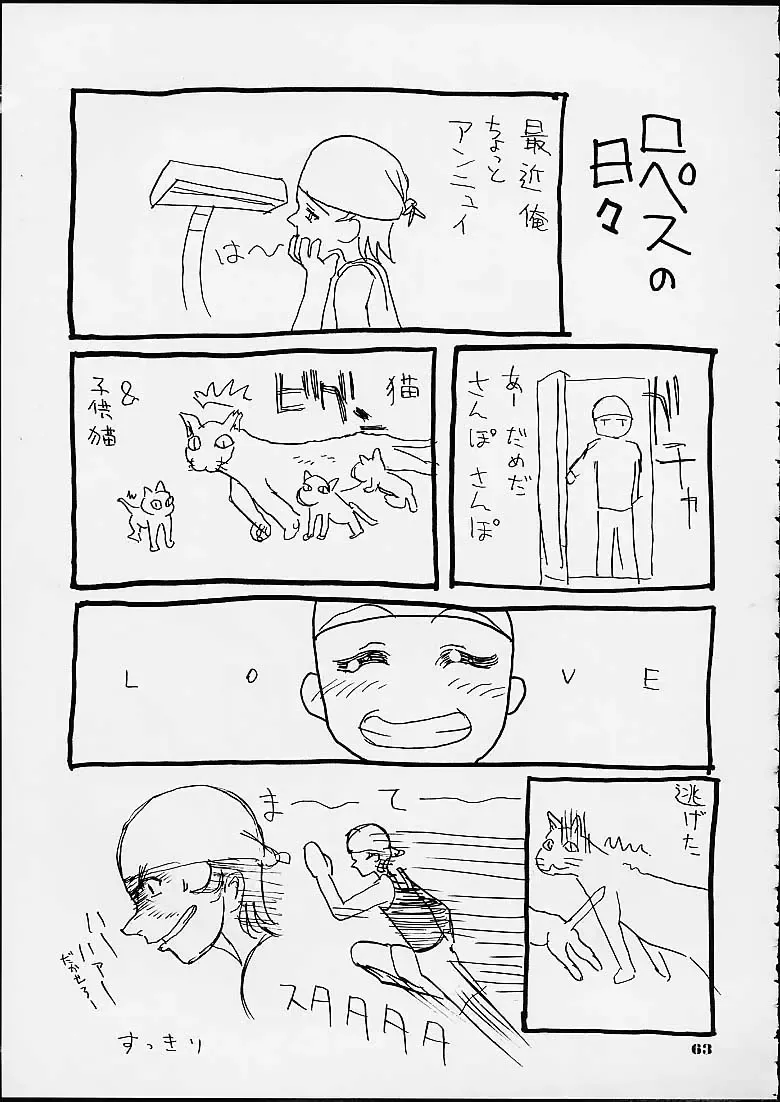 ロペスの
日々
最近俺
ちょっと
アンニュイ
は〜
ガチャ
あーだめだ
さんぽさんぽ
猫
ビグッ
&
子供猫
LOVE
逃げた
まーてー
ハハハァー
だかせろー
スタタタタ
すっきり
63